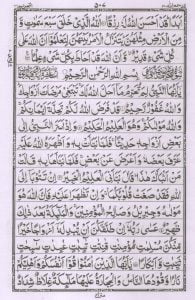 ٥٠٧
اَبَدًا ؕ قَدْ اَحْسَنَ اللّٰهُ لَهٗ رِزْقًا ۝ اَللّٰهُ الَّذِیْ خَلَقَ سَبْعَ سَمٰوٰتٍ وَّ
مِنَ الْاَرْضِ مِثْلَهُنَّ ؕ یَتَنَزَّلُ الْاَمْرُ بَیْنَهُنَّ لِتَعْلَمُوْۤا اَنَّ اللّٰهَ عَلٰی
كُلِّ شَیْءٍ قَدِیْرٌ ۙ وَّ اَنَّ اللّٰهَ قَدْ اَحَاطَ بِكُلِّ شَیْءٍ عِلْمًا ۝
بِسْمِ اللّٰهِ الرَّحْمٰنِ الرَّحِیْمِ
یٰۤاَیُّهَا النَّبِیُّ لِمَ تُحَرِّمُ مَاۤ اَحَلَّ اللّٰهُ لَكَ ۚ تَبْتَغِیْ مَرْضَاتَ اَزْوَاجِكَ ؕ
وَ اللّٰهُ غَفُوْرٌ رَّحِیْمٌ ۝ قَدْ فَرَضَ اللّٰهُ لَكُمْ تَحِلَّةَ اَیْمَانِكُمْ ۚ
وَ اللّٰهُ مَوْلٰىكُمْ ۚ وَ هُوَ الْعَلِیْمُ الْحَكِیْمُ ۝ وَ اِذْ اَسَرَّ النَّبِیُّ اِلٰی
بَعْضِ اَزْوَاجِهٖ حَدِیْثًا ۚ فَلَمَّا نَبَّاَتْ بِهٖ وَ اَظْهَرَهُ اللّٰهُ عَلَیْهِ
عَرَّفَ بَعْضَهٗ وَ اَعْرَضَ عَنْۢ بَعْضٍ ۚ فَلَمَّا نَبَّاَهَا بِهٖ قَالَتْ مَنْ
اَنْۢبَاَكَ هٰذَا ؕ قَالَ نَبَّاَنِیَ الْعَلِیْمُ الْخَبِیْرُ ۝ اِنْ تَتُوْبَاۤ اِلَی
اللّٰهِ فَقَدْ صَغَتْ قُلُوْبُكُمَا ۚ وَ اِنْ تَظٰهَرَا عَلَیْهِ فَاِنَّ اللّٰهَ هُوَ
مَوْلٰىهُ وَ جِبْرِیْلُ وَ صَالِحُ الْمُؤْمِنِیْنَ ۚ وَ الْمَلٰٓىِٕكَةُ بَعْدَ ذٰلِكَ
ظَهِیْرٌ ۝ عَسٰی رَبُّهٗۤ اِنْ طَلَّقَكُنَّ اَنْ یُّبْدِلَهٗۤ اَزْوَاجًا خَیْرًا
مِّنْكُنَّ مُسْلِمٰتٍ مُّؤْمِنٰتٍ قٰنِتٰتٍ تٰٓىِٕبٰتٍ عٰبِدٰتٍ سٰٓىِٕحٰتٍ
ثَیِّبٰتٍ وَّ اَبْكَارًا ۝ یٰۤاَیُّهَا الَّذِیْنَ اٰمَنُوْا قُوْۤا اَنْفُسَكُمْ وَ اَهْلِیْكُمْ
نَارًا وَّ قُوْدُهَا النَّاسُ وَ الْحِجَارَةُ عَلَیْهَا مَلٰٓىِٕكَةٌ غِلَاظٌ شِدَادٌ